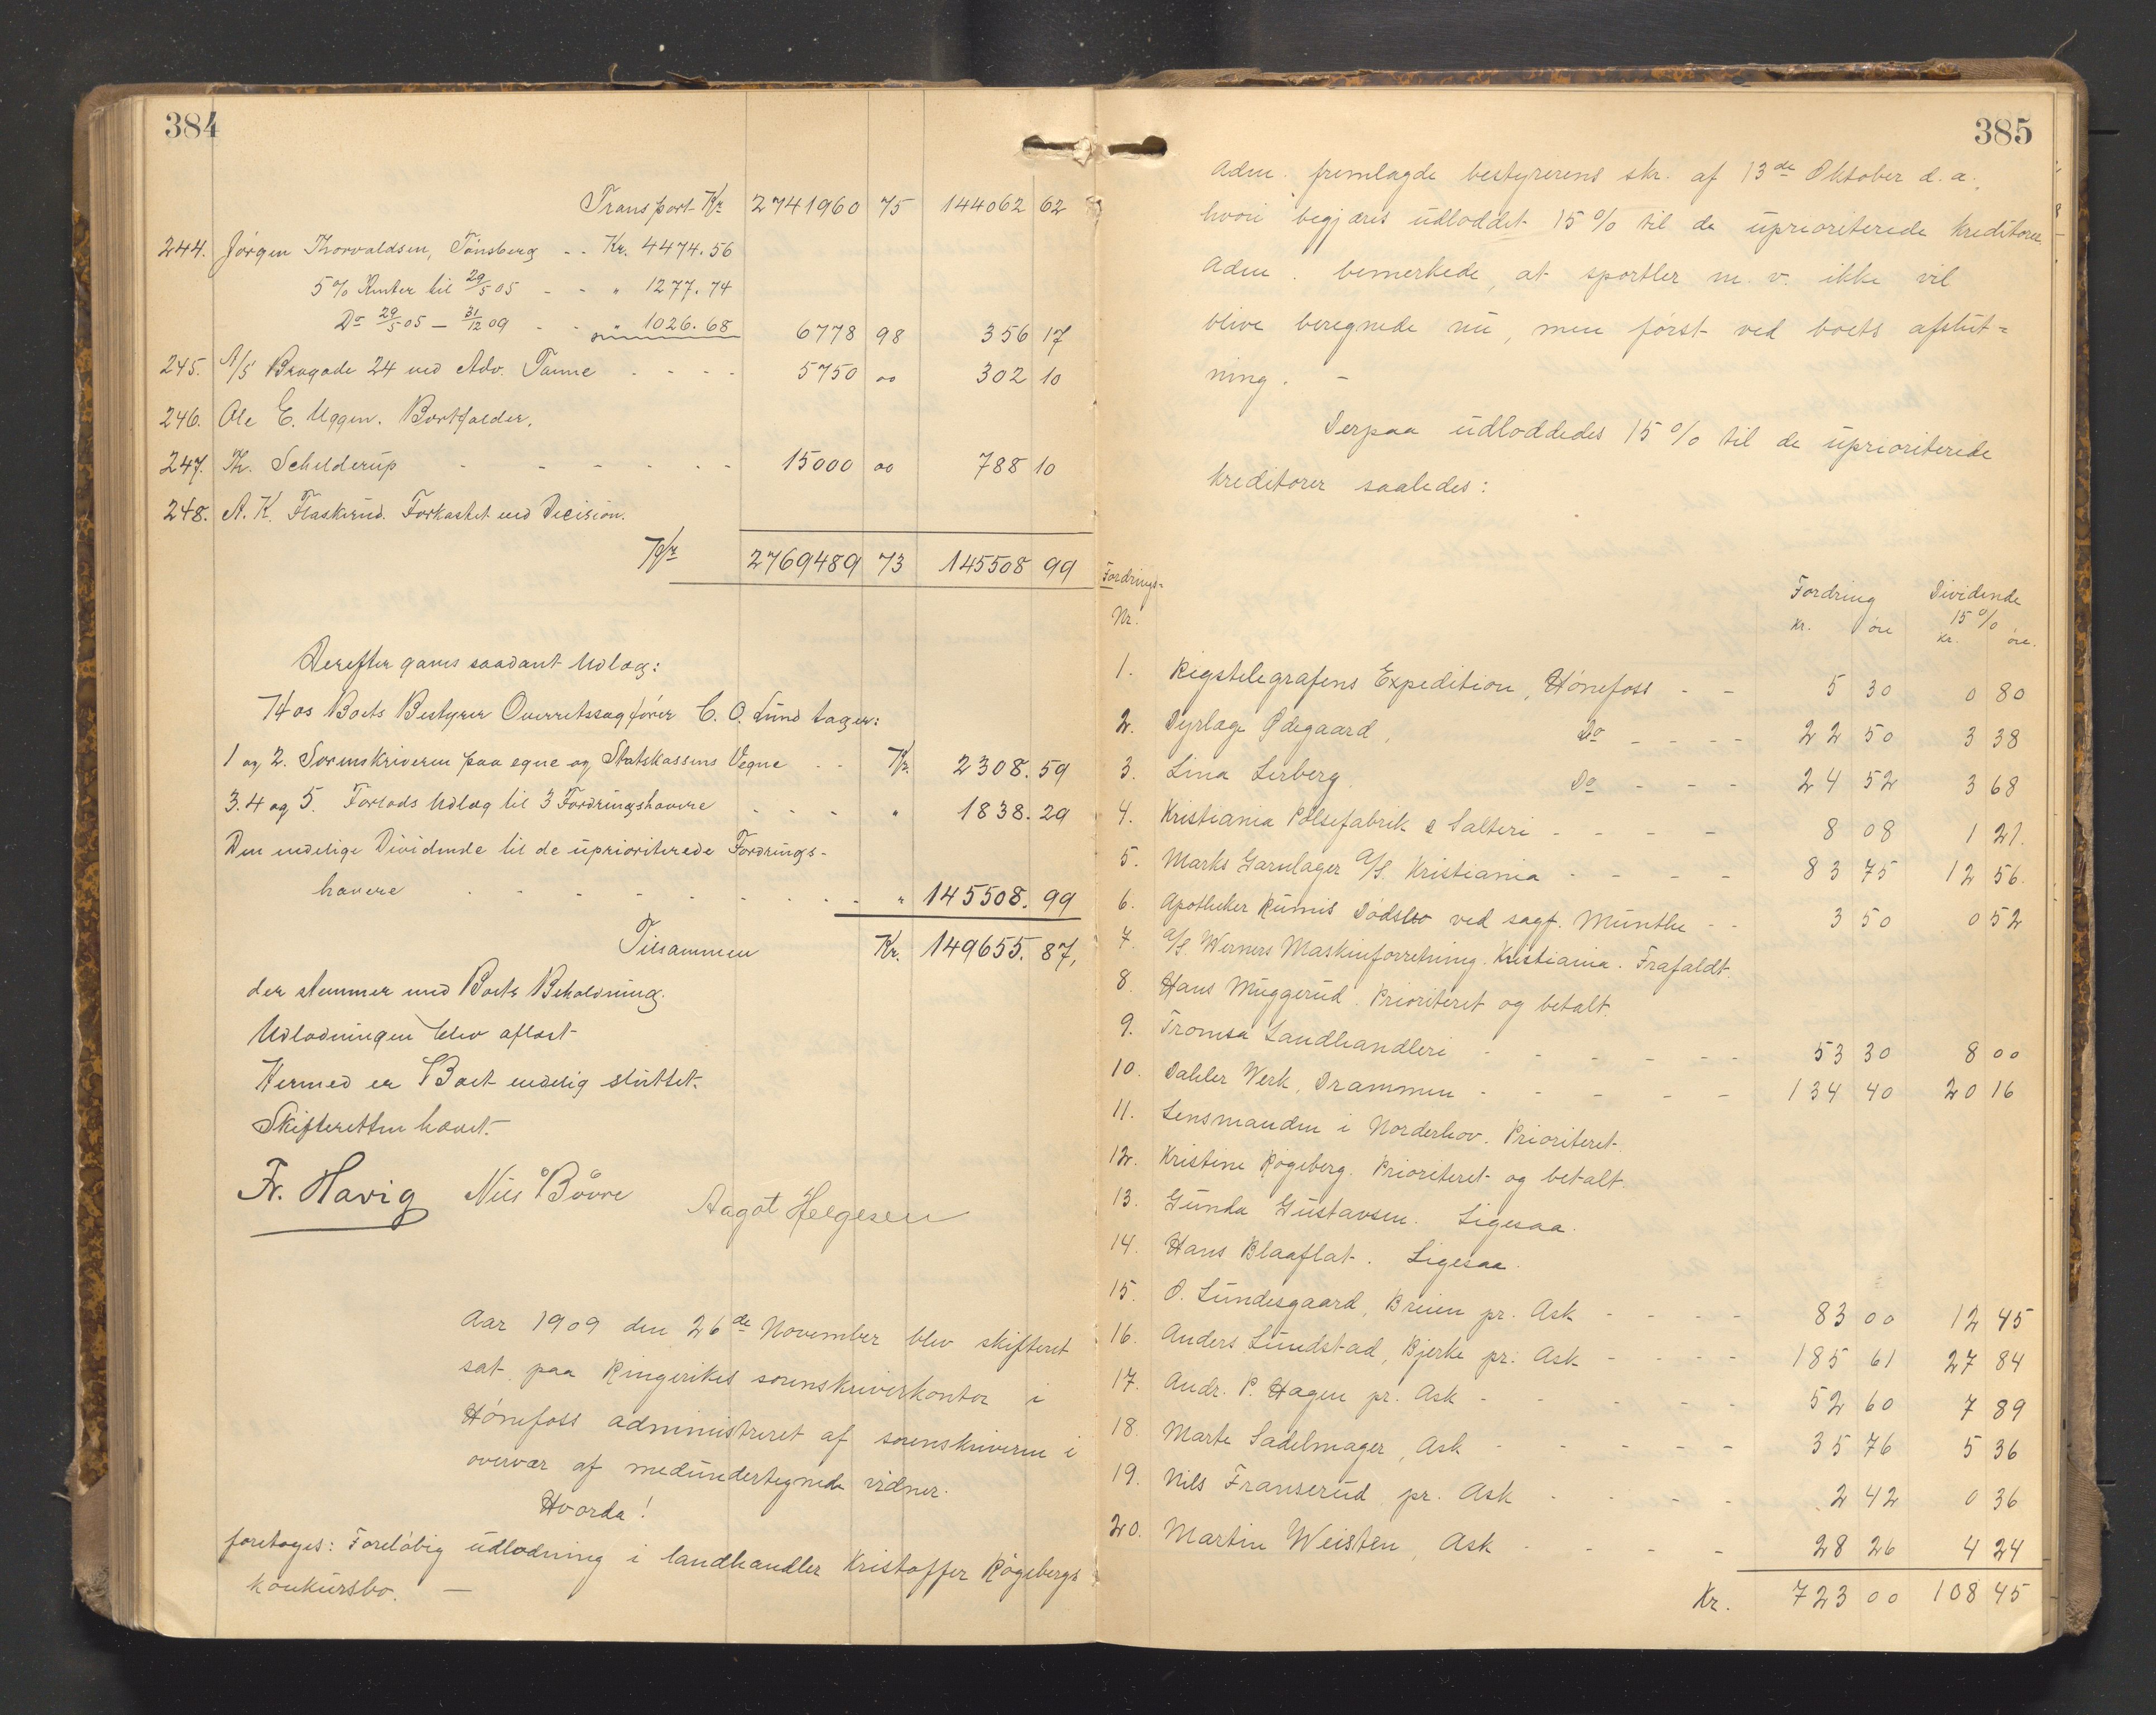 384
Transport Kr 2741960 75 144062 62
244. Jörgen Thorvaldsen, Tönsberg - - Kr. 4474.56
5% Renter til 29/5 05 - - " 1277.74
Do 29/5 05 — 31/12 09 - - " 1026.68 6778 98 356 17
245. A/S Bragade 24 ved Adv. Tanne - - - - 5750 00 302 10
246. Ole E. Uggen. Bortfalder.
247. Th. Schelderup - - - - - - 15000 00 788 10
248. A. K. Flaskerud. Forkastet ved Decision.
Kr 2769489 73 145508 99
Derefter gaves saadant Udlæg:
Hos Boets Bestyrer Overretssagfører C. O. Lund tager:
1 og 2. Sorenskriveren paa egne og Statskassens Vegne - - Kr. 2308. 59
3. 4 og 5. Forlods Udlæg til 3 Fordringshavere - - - " 1838. 29
Den endelige Dividende til de uprioriterede Fordrings-
havere - - - - - - - - " 145508. 99
Tilsammen Kr. 149655. 87,
der stemmer med Boets Beholdning.
Udlodningen blev oplæst
Hermed er Boet endelig sluttet.
Skifteretten hævet.
Fr. Havig Nils Bövre Aagot Helgesen
Aar 1909 den 26de November blev skifteret
sat paa Ringerikes sorenskriverkontor i
Hönefoss administreret af sorenskriveren i
overvær af medundertegnede vidner.
Hvorda!
foretoges: Forelöbig udlodning i landhandler Kristoffer Rögebergs
konkursbo. —
385
Adm. fremlagde bestyrerens skr. af 13de Oktober d.a.,
hvori begjæres udloddet 15% til de uprioriterede kreditorer.
Adm. bemerkede, at sportler m. v. ikke vil
blive beregnede nu, men först ved boets afslut=
ning. —
Derpaa udloddedes 15% til de uprioriterede
kreditorer saaledes:
Fordrings-
Nr.
Fordring Dividende
15%
kr. öre kr. öre.
1. Rigstelegrafens Expedition, Hönefoss - - 5 30 0 80
2. Dyrlæge Ødegaard, Do - - - - 22 50 3 38
3. Lina Lerberg Do - - - 24 52 3 68
4. Kristiania Pölsefabrik & Salteri - - - - 8 08 1 21.
5. Marks Garnlager A/S. Kristiania - - - - 83 75 12 56.
6. Apotheker Rumis Dödsbo ved sagf. Munthe - - 3 50 0 52
7. A/S Werners Maskinforretning. Kristiania. Frafaldt.
8. Hans Muggerud. Prioriteret og betalt.
9. Tromsa Landhandleri - - - - - - 53 30 8 00
10. Dahler Werk, Drammen - - - - - 134 40 20 16
11. Lensmanden i Norderhov. Prioriteret.
12. Kristine Rögeberg. Prioriteret og betalt.
13. Gunda Gustavsen. Ligesaa.
14. Hans Blaaflat. Ligesaa.
15. O. Lundesgaard, Breien pr. Ask - - - - 83 00 12 45
16. Anders Lundstad, Bjerke pr. Ask - - - - 185 61 27 84
17. Andr. P. Hagen pr. Ask - - - - - 52 60 7 89
18. Marte Sadelmager, Ask - - - - - 35 76 5 36
19. Nils Franserud pr. Ask - - - - 2 42 0 36
20. Martin Weisten, Ask - - - - 28 26 4 24
Kr. 723 00 108 45